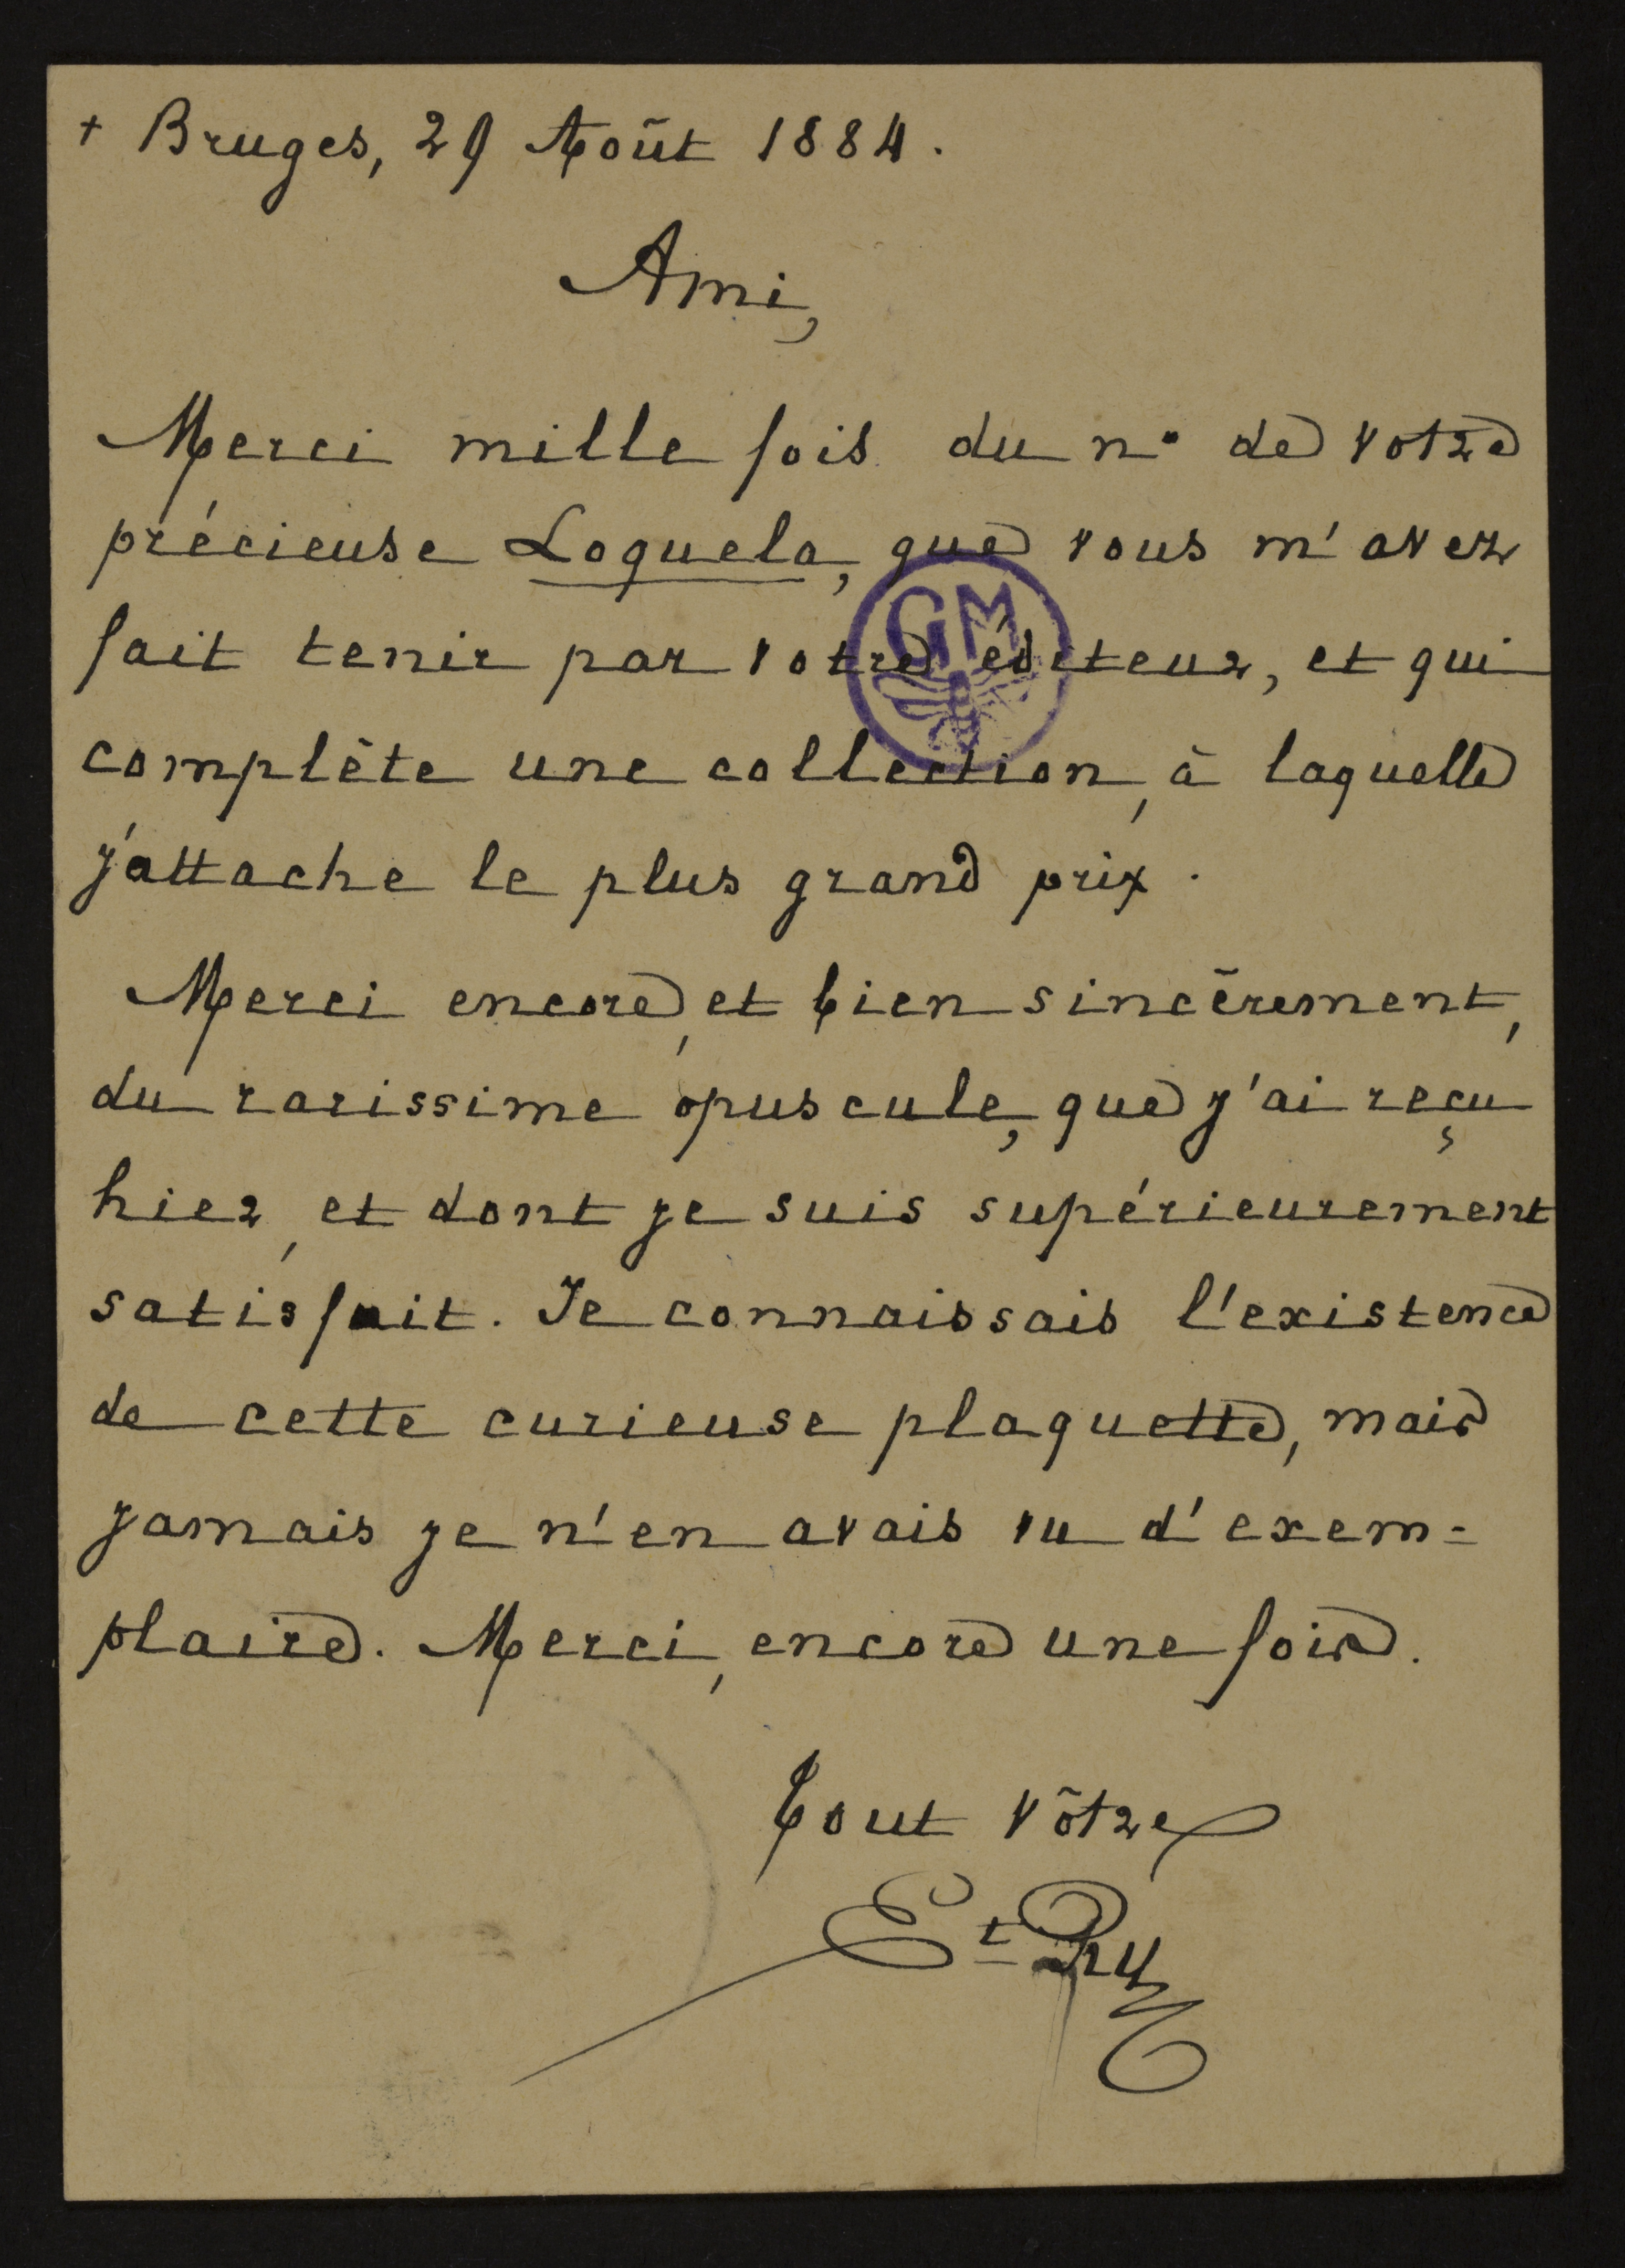 + Bruges, 29 Août 1884.
Ami,
Merci mille fois du nº de votre
précieuse Loquela, que vous m'avez
GM
fait tenir par votre éditeur, et qui
complète une collection, à laquelle
j'attache le plus grand prix.
Merci encore, et bien sincèrement,
du rarissime opuscule, que j'ai reçu
hier, et dont je suis supérieurement
satisfait. Je connaissais l'existence
de cette curieuse plaquette, mais
jamais je n'en avais vu d'exem=
plaire. Merci, encore une fois.
Tout vôtre